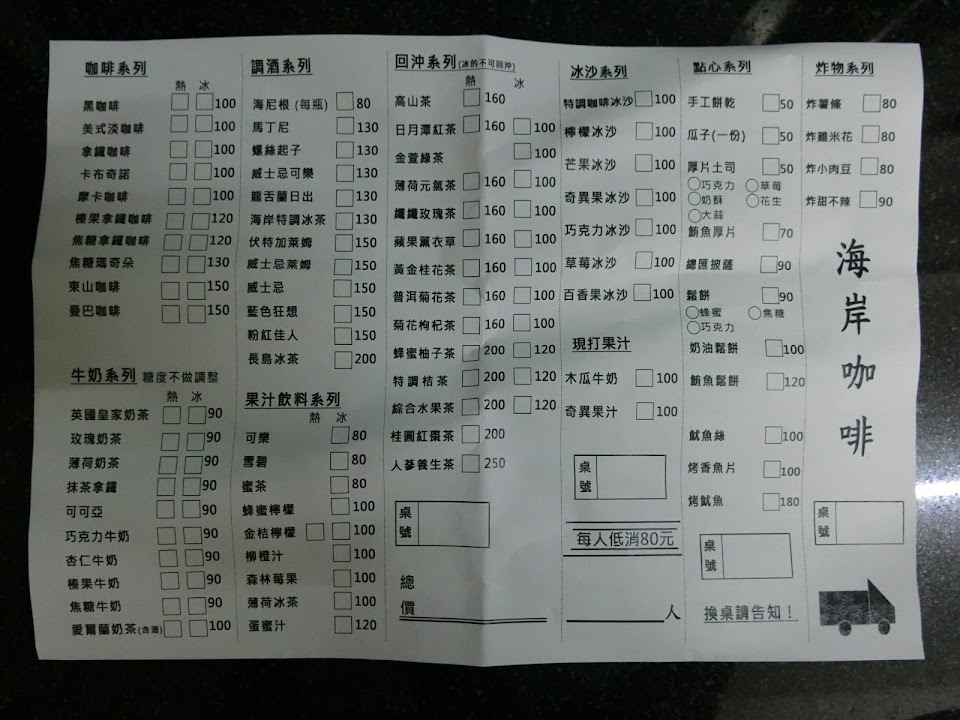 咖啡系列
熱 冰
黑咖啡 100
美式淡咖啡 100
拿鐵咖啡 100
卡布奇諾 100
摩卡咖啡 100
榛果拿鐵咖啡 120
焦糖拿鐵咖啡 120
焦糖瑪奇朵 130
東山咖啡 150
曼巴咖啡 150
牛奶系列 糖度不做調整
熱 冰
英國皇家奶茶 90
玫瑰奶茶 90
薄荷奶茶 90
抹茶拿鐵 90
可可亞 90
巧克力牛奶 90
杏仁牛奶 90
榛果牛奶 90
焦糖牛奶 90
愛爾蘭奶茶(含酒) 100
調酒系列
海尼根 (每瓶) 80
馬丁尼 130
螺絲起子 130
威士忌可樂 130
龍舌蘭日出 130
海岸特調冰茶 130
伏特加萊姆 150
威士忌萊姆 150
威士忌 150
藍色狂想 150
粉紅佳人 150
長島冰茶 200
果汁飲料系列
熱 冰
可樂 80
雪碧 80
蜜茶 80
蜂蜜檸檬 100
金桔檸檬 100
柳橙汁 100
森林莓果 100
薄荷冰茶 100
蛋蜜汁 120
回沖系列(冰的不可回沖)
熱 冰
高山茶 160
日月潭紅茶 160 100
金萱綠茶 100
薄荷元氣茶 160 100
纖纖玫瑰茶 160 100
蘋果薰衣草 160 100
黃金桂花茶 160 100
普洱菊花茶 160 100
菊花枸杞茶 160 100
蜂蜜柚子茶 200 120
特調桔茶 200 120
綜合水果茶 200 120
桂圓紅棗茶 200
人蔘養生茶 250
桌
號
總
價
冰沙系列
特調咖啡冰沙 100
檸檬冰沙 100
芒果冰沙 100
奇異果冰沙 100
巧克力冰沙 100
草莓冰沙 100
百香果冰沙 100
現打果汁
木瓜牛奶 100
奇異果汁 100
桌
號
每人低消80元
人
點心系列
手工餅乾 50
瓜子(一份) 50
厚片土司 50
巧克力 草莓
奶酥 花生
大蒜
鮪魚厚片 70
總匯披薩 90
鬆餅 90
蜂蜜 焦糖
巧克力
奶油鬆餅 100
鮪魚鬆餅 120
魷魚絲 100
烤香魚片 100
烤魷魚 180
桌
號
換桌請告知！
炸物系列
炸薯條 80
炸雞米花 80
炸小肉豆 80
炸甜不辣 90
海岸咖啡
桌
號